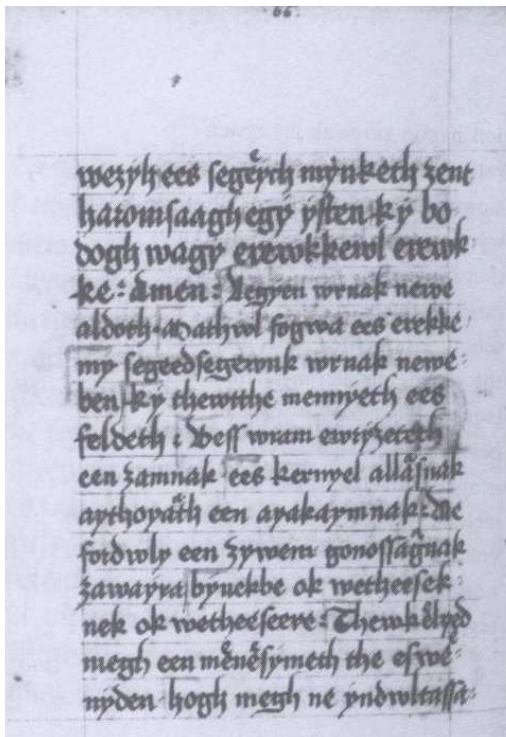 .66.
wezyh ees segeych mynketh zent
haromsaagh egy ysten ky bo
dogh wagy erewkkewl erewk
ke : Amen : Legyen wrnak newe
aldoth · Mathwl fogwa ees erekke
my segeedsegewnk wrnak newe-
ben · ky thewtthe mennyeth ees
feldeth : Vess wram ewryzeteth
een zamnak ees kernyel allasnak
aythoyath een ayakaymnak : Ne
fordwly een zywem gonossagnak
zawayra bynekbe ok wetheesek-
nek ok wetheeseere : Thewkelyed
megh een menesymeth the eswe-
nyden hogh megh ne yndwltassa-